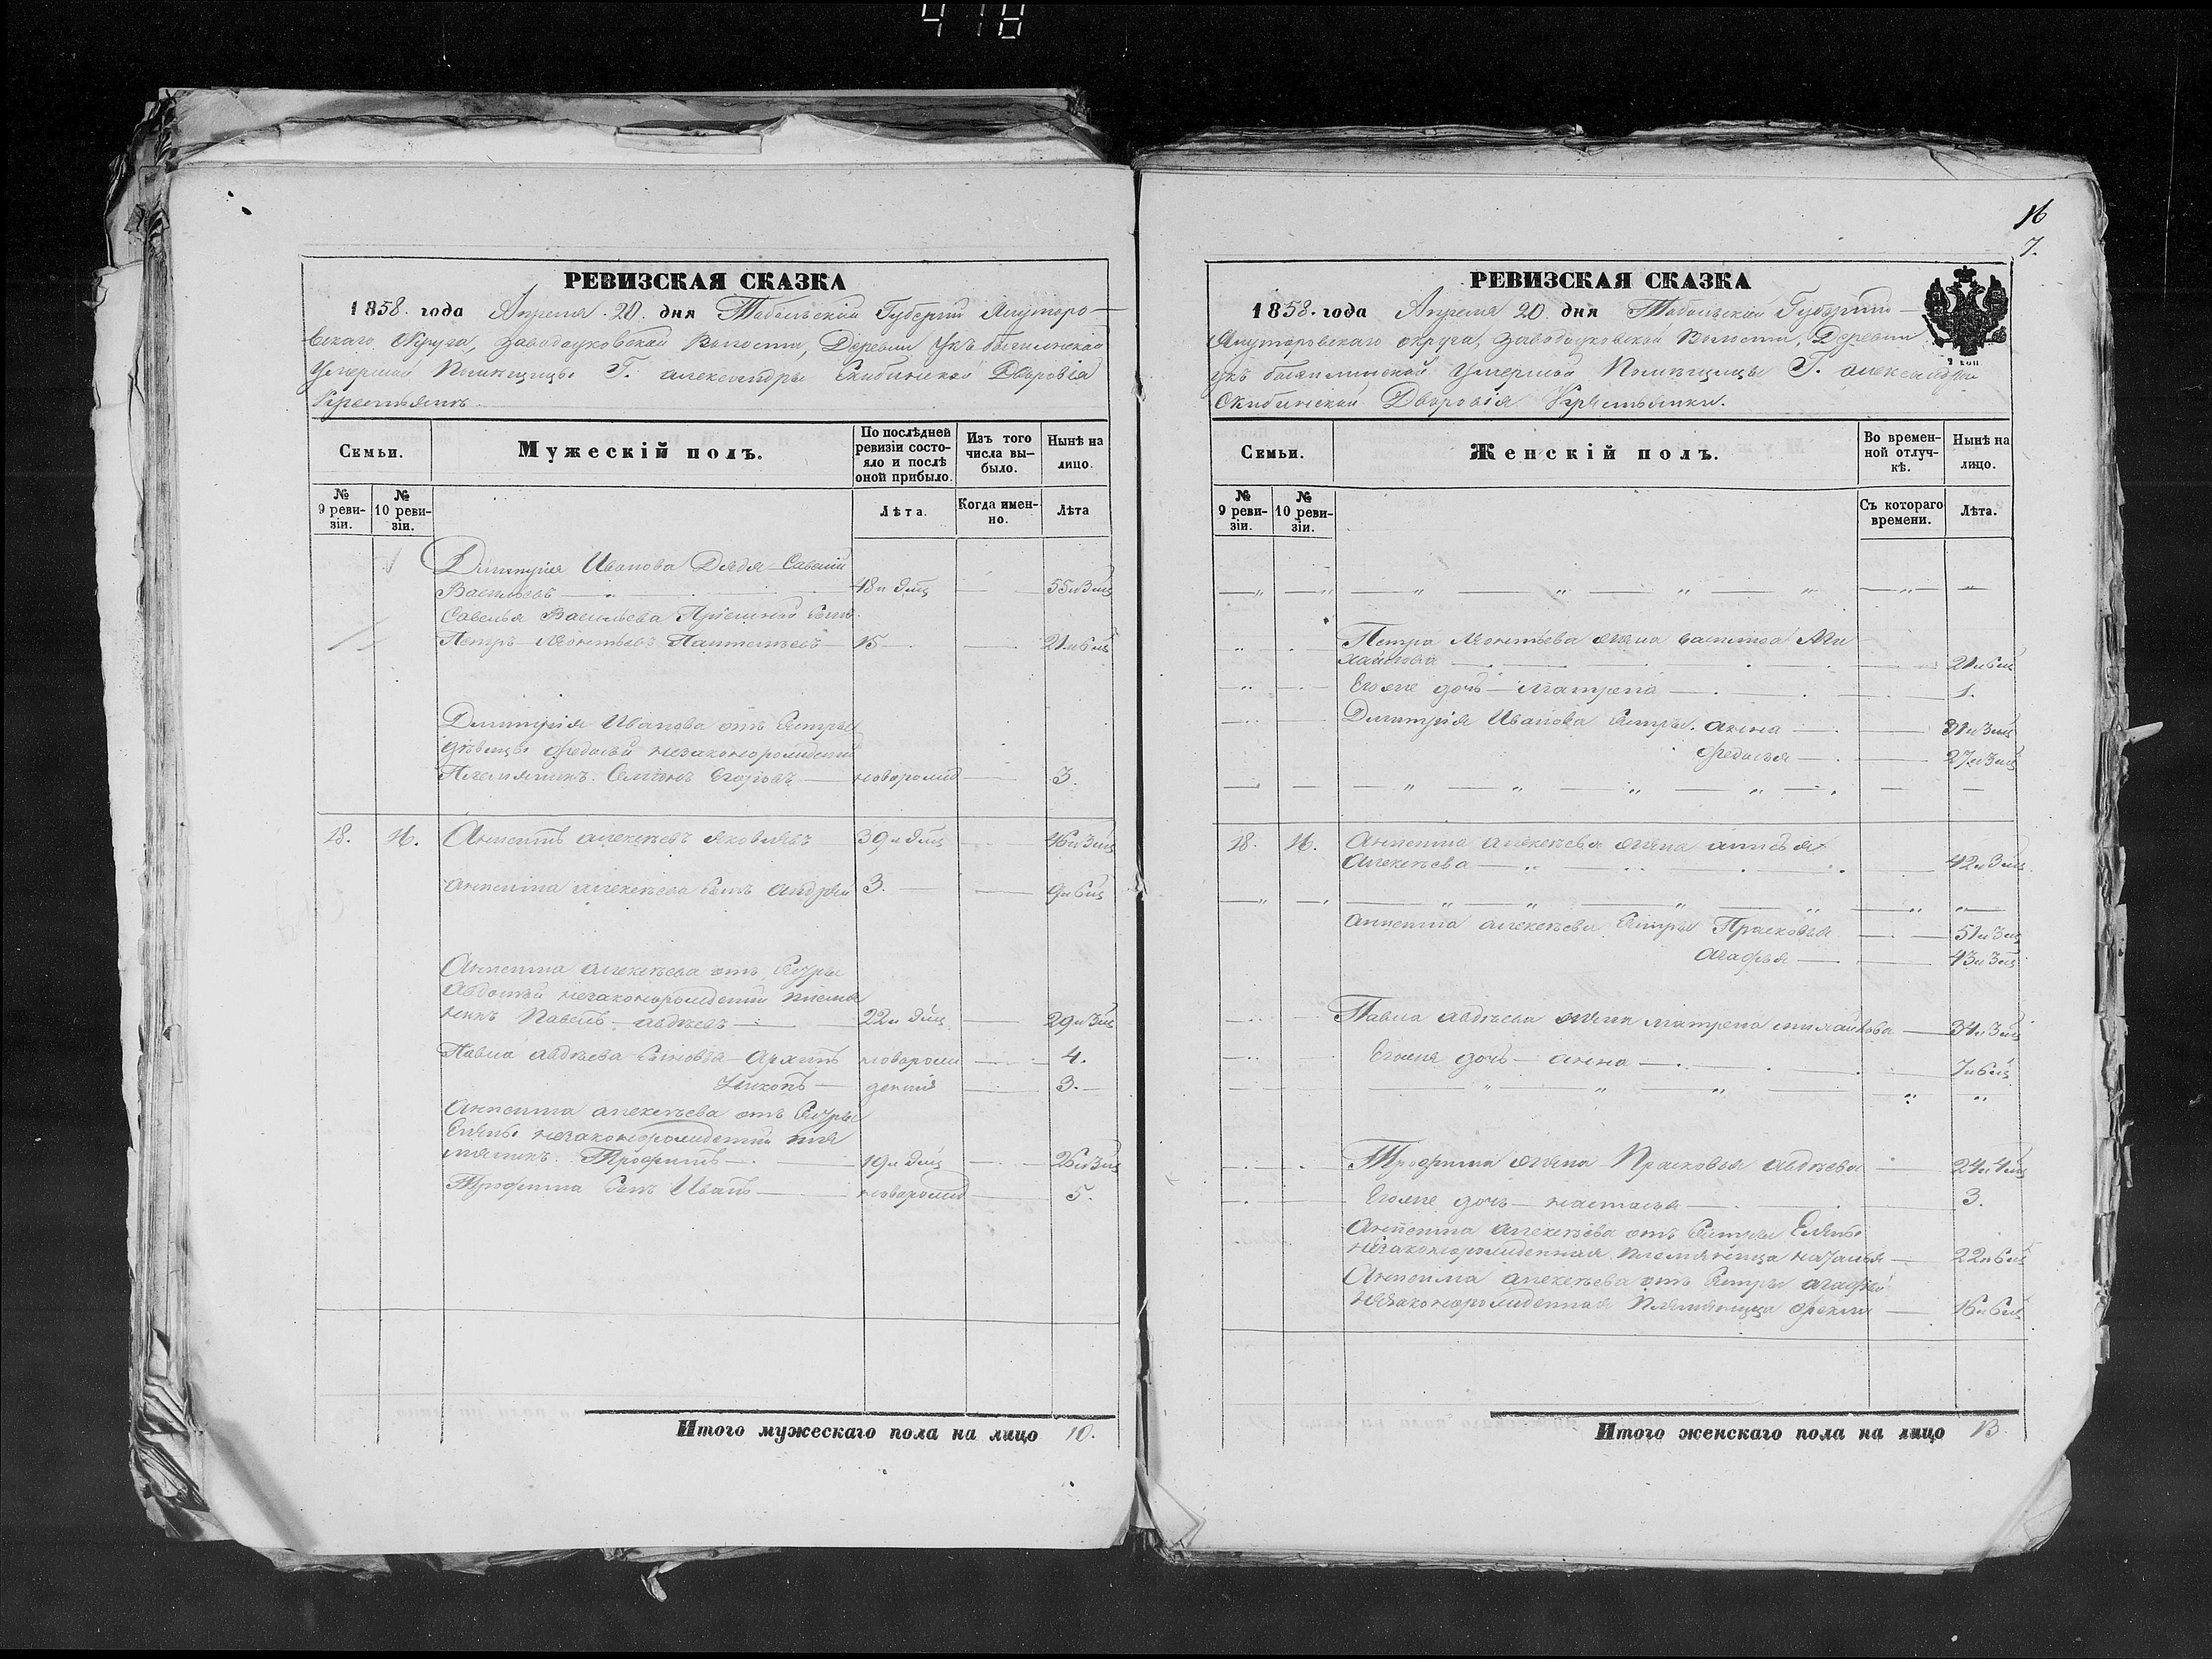 418
РЕВИЗСКАЯ СКАЗКА
1858. года Апреля 20. дня Тобольской Губерніи Ялуторо-
вскаго Округа, Заводоуковской Волости, Деревни Укъ
Умершей Помѣщицы Г. Александры Скибинской Дворовыя
Крестьянъ.
Семьи.
Мужескій полъ.
По послѣдней ревизіи состояло и послѣ оной прибыло.
Изъ того числа выбыло.
Нынѣ на лицо.
№ 9 ревизіи.
№ 10 ревизіи.
Лѣта.
Когда именно.
Лѣта
Димитрія Иванова Дядя Савелій
Васильевъ 48 и 9 мц 55 и 3 мц
Савелья Васильева Пріемной сынъ
Петръ Леонтьевъ Пантелѣевъ 15 21 и 6 мц
Димитрія Иванова отъ Сестры
дѣвицы Федосьи незаконорожденный
Племянникъ Семіонъ Егоровъ новорожд 3.
18. 16. Анпенъ Алексѣевъ Яковлевъ 39 и 9 мц 46 и 3 мц
Алексѣева сынъ Андрей 3. 9 и 6 мц
Алексѣева отъ Сестры
Авдотьи незаконорожденный племя
никъ Павелъ Авдѣевъ 22 и 9 мц 29 и 3 мц
Павла Авдѣева Сыновья Архипъ новорож 4.
Никонъ денныя 3.
Алексѣева отъ Сестры
Елены незаконорожденный пле
мянникъ Трофимъ 19 и 9 мц 26 и 3 мц
Трофима сынъ Иванъ новорожд 5.
Итого мужескаго пола на лицо 10.
16
7.
РЕВИЗСКАЯ СКАЗКА
1858. года Апреля 20. дня Тобольской Губерніи
Ялуторовскаго округа, Заводоуковской Волости, Деревни
Укъ Умершей Помѣщицы Г. Александры
Скибинской Дворовыя Крестьянки.
Семьи.
Женскій полъ.
Во временной отлучкѣ.
Нынѣ на лицо.
№ 9 ревизіи.
№ 10 ревизіи.
Съ котораго времени.
Лѣта.
Петра Леонтьева жена Ми
хайлова 21 и 6 мц
Его же дочь Матрена 1.
Димитрія Иванова Сестры. Анна 31 и 3 мц
Федосья 27 и 3 мц
18. 16. Алексѣева жена
Алексѣева 42 и 3 мц
Алексѣева Сестры Прасковья 51 и 3 мц
Агафья 43 и 3 мц
Павла Авдѣева жена Матрена 34 и 3 мц
Его же дочь Анна 7 и 6 мц
Трофима жена Прасковья Авдѣева 24 и 4 мц
Его же дочь Настасья 3.
Алексѣева отъ Сестры Елены
незаконорожденная Племянница Наталья 22 и 6 мц
Алексѣева отъ Сестры Агафьи
незаконорожденная Племянница Фекла 16 и 6 мц
Итого женскаго пола на лицо 13.